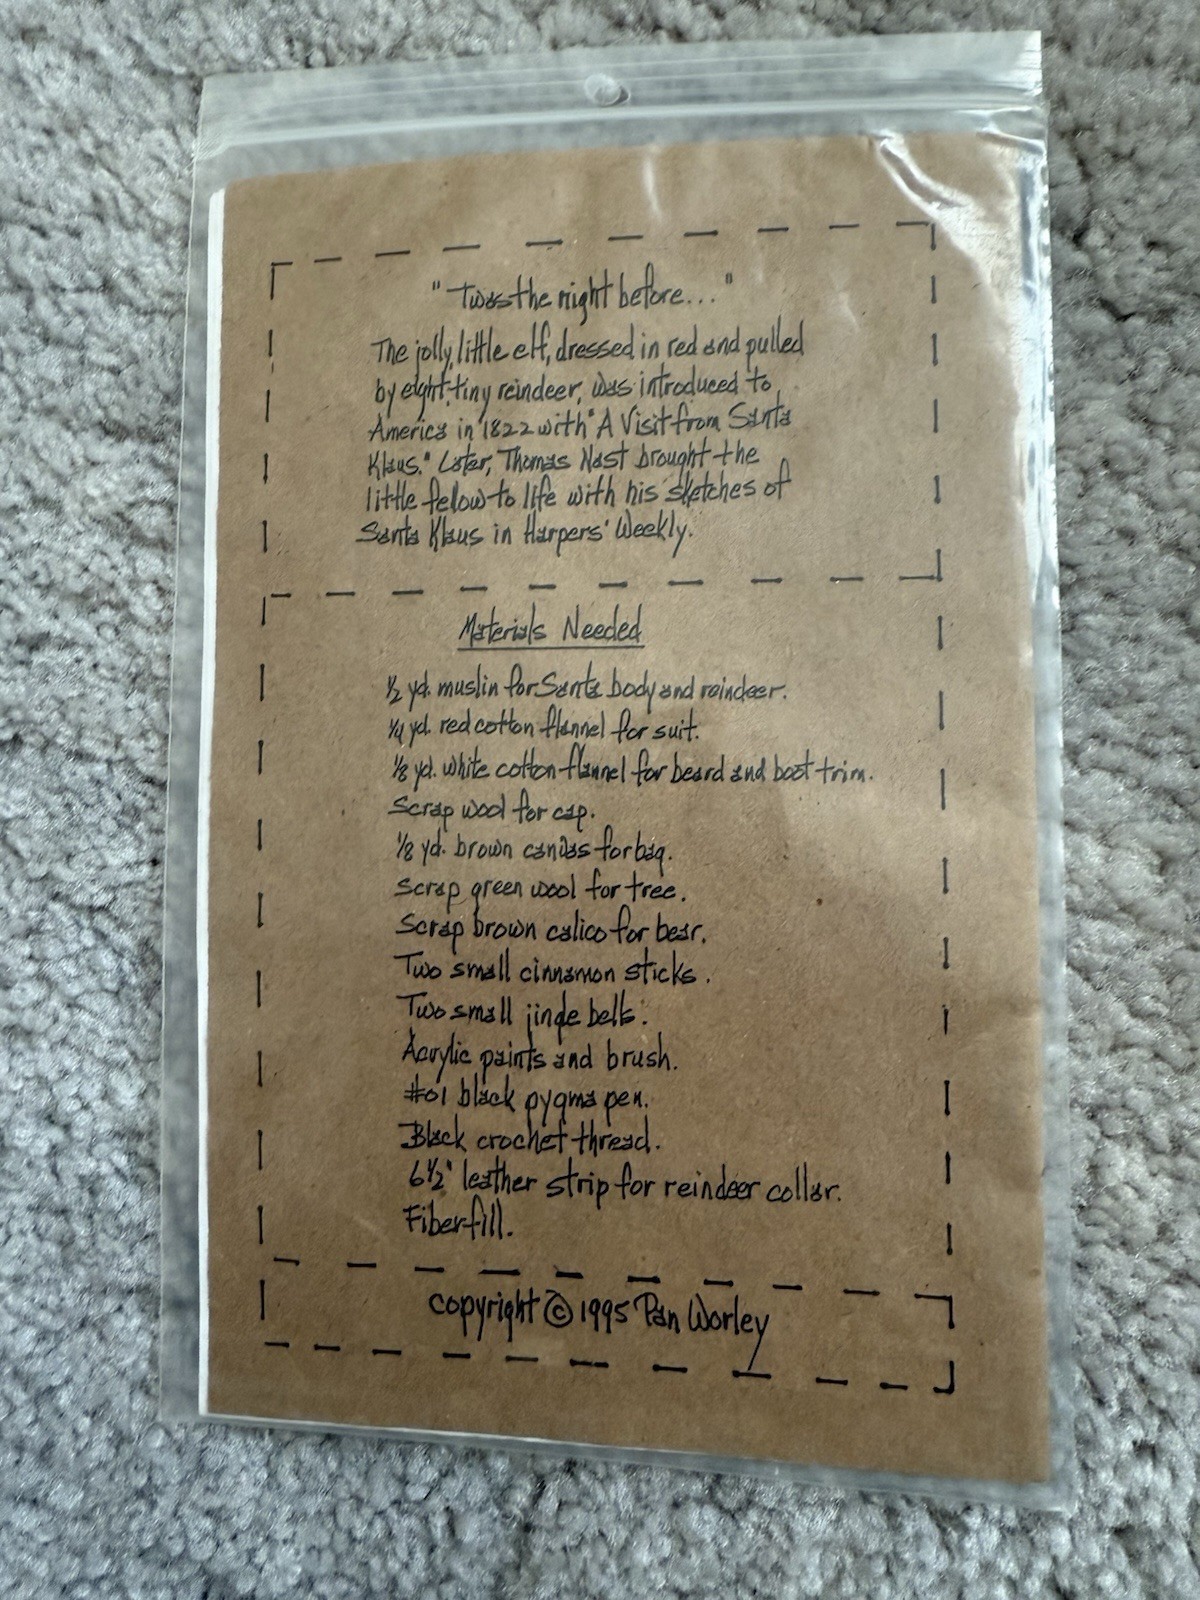 "Twas the night before..."
The jolly, little elf, dressed in red and pulled
by eight, tiny reindeer, was introduced to
America in 1822 with "A Visit from Santa
Klaus." Later, Thomas Nast brought the
little fellow to life with his sketches of
Santa Klaus in Harpers' Weekly.
Materials Needed
1/2 yd. muslin for Santa body and reindeer.
1/4 yd. red cotton flannel for suit.
1/8 yd. white cotton flannel for beard and boot trim.
Scrap wool for cap.
1/8 yd. brown canvas for bag.
Scrap green wool for tree.
Scrap brown calico for bear.
Two small cinnamon sticks.
Two small jingle bells.
Acrylic paints and brush.
#01 black pygma pen.
Black crochet thread.
6 1/2" leather strip for reindeer collar.
Fiberfill.
copyright © 1995 Pan Worley